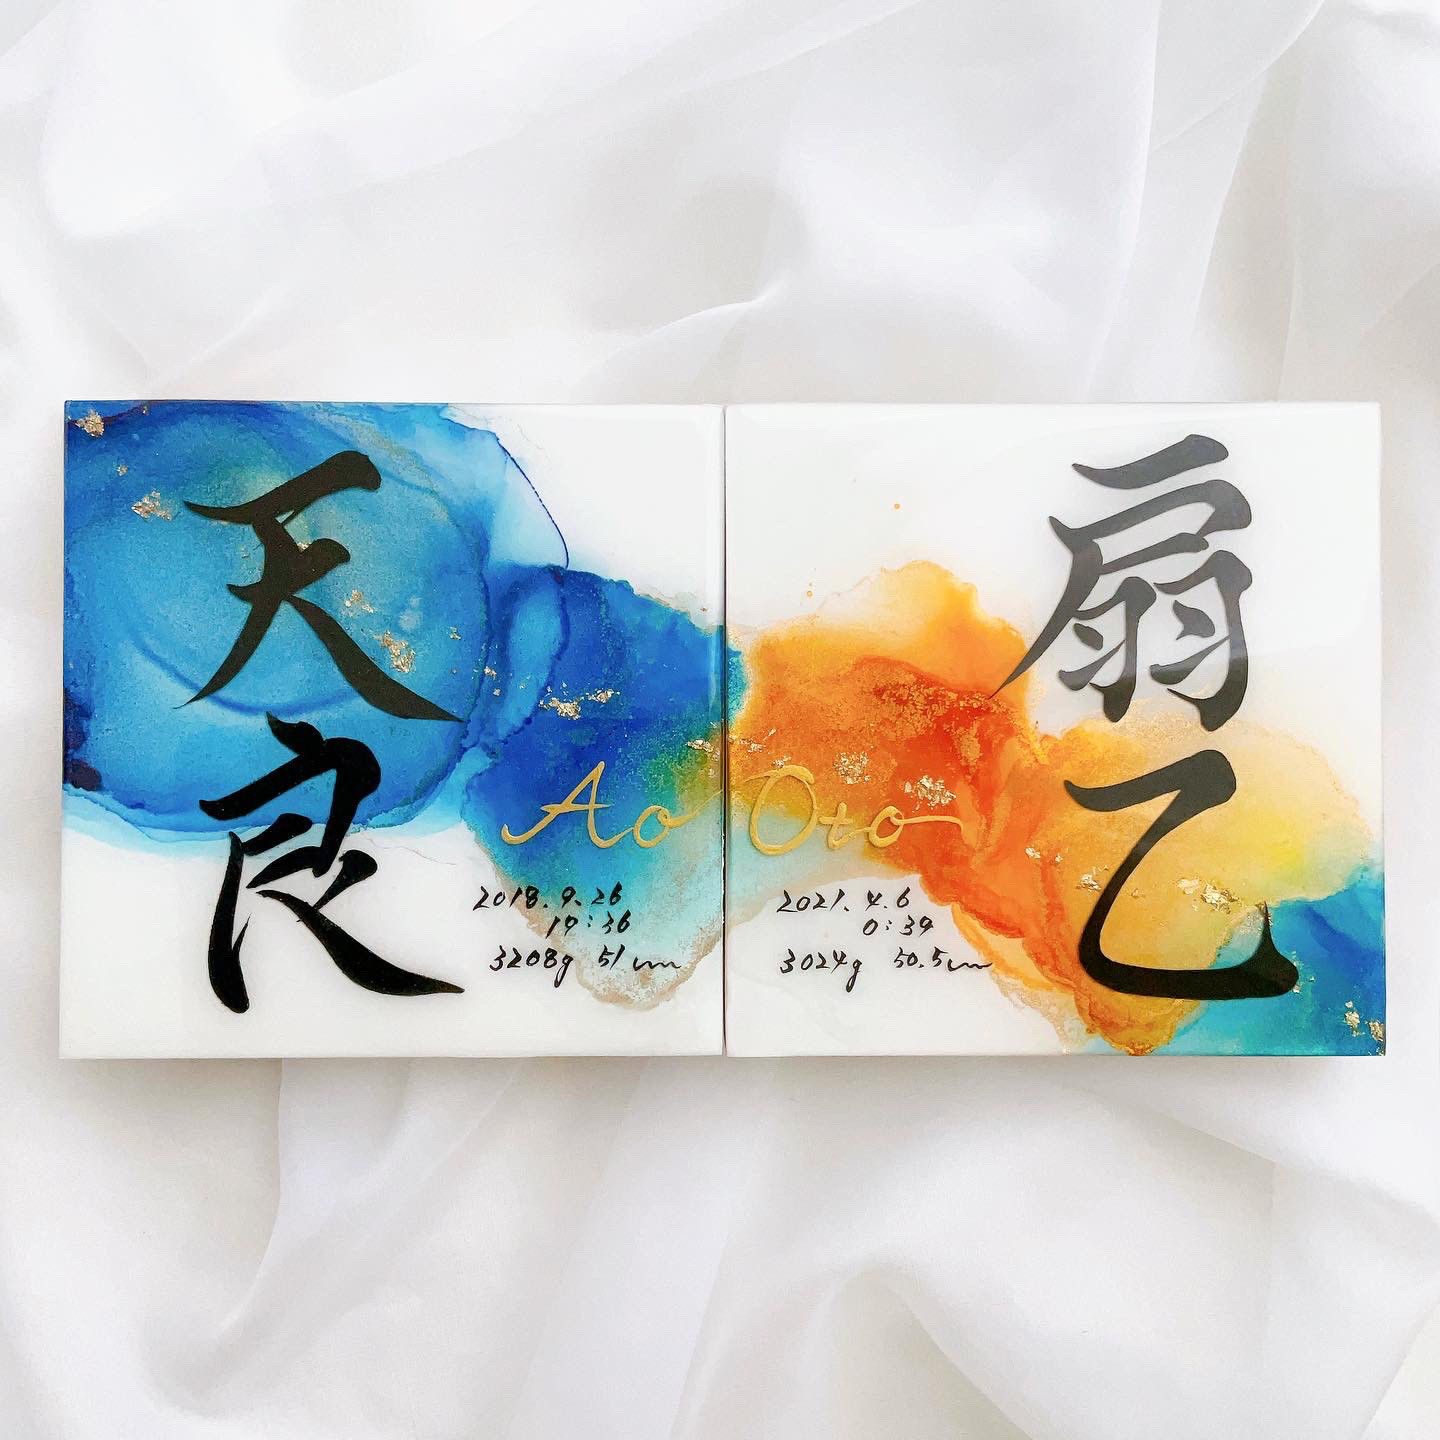 天良
Ao
2018.9.26
19:36
3208g 51cm
扇乙
Oto
2021.4.6
0:39
3024g 50.5cm